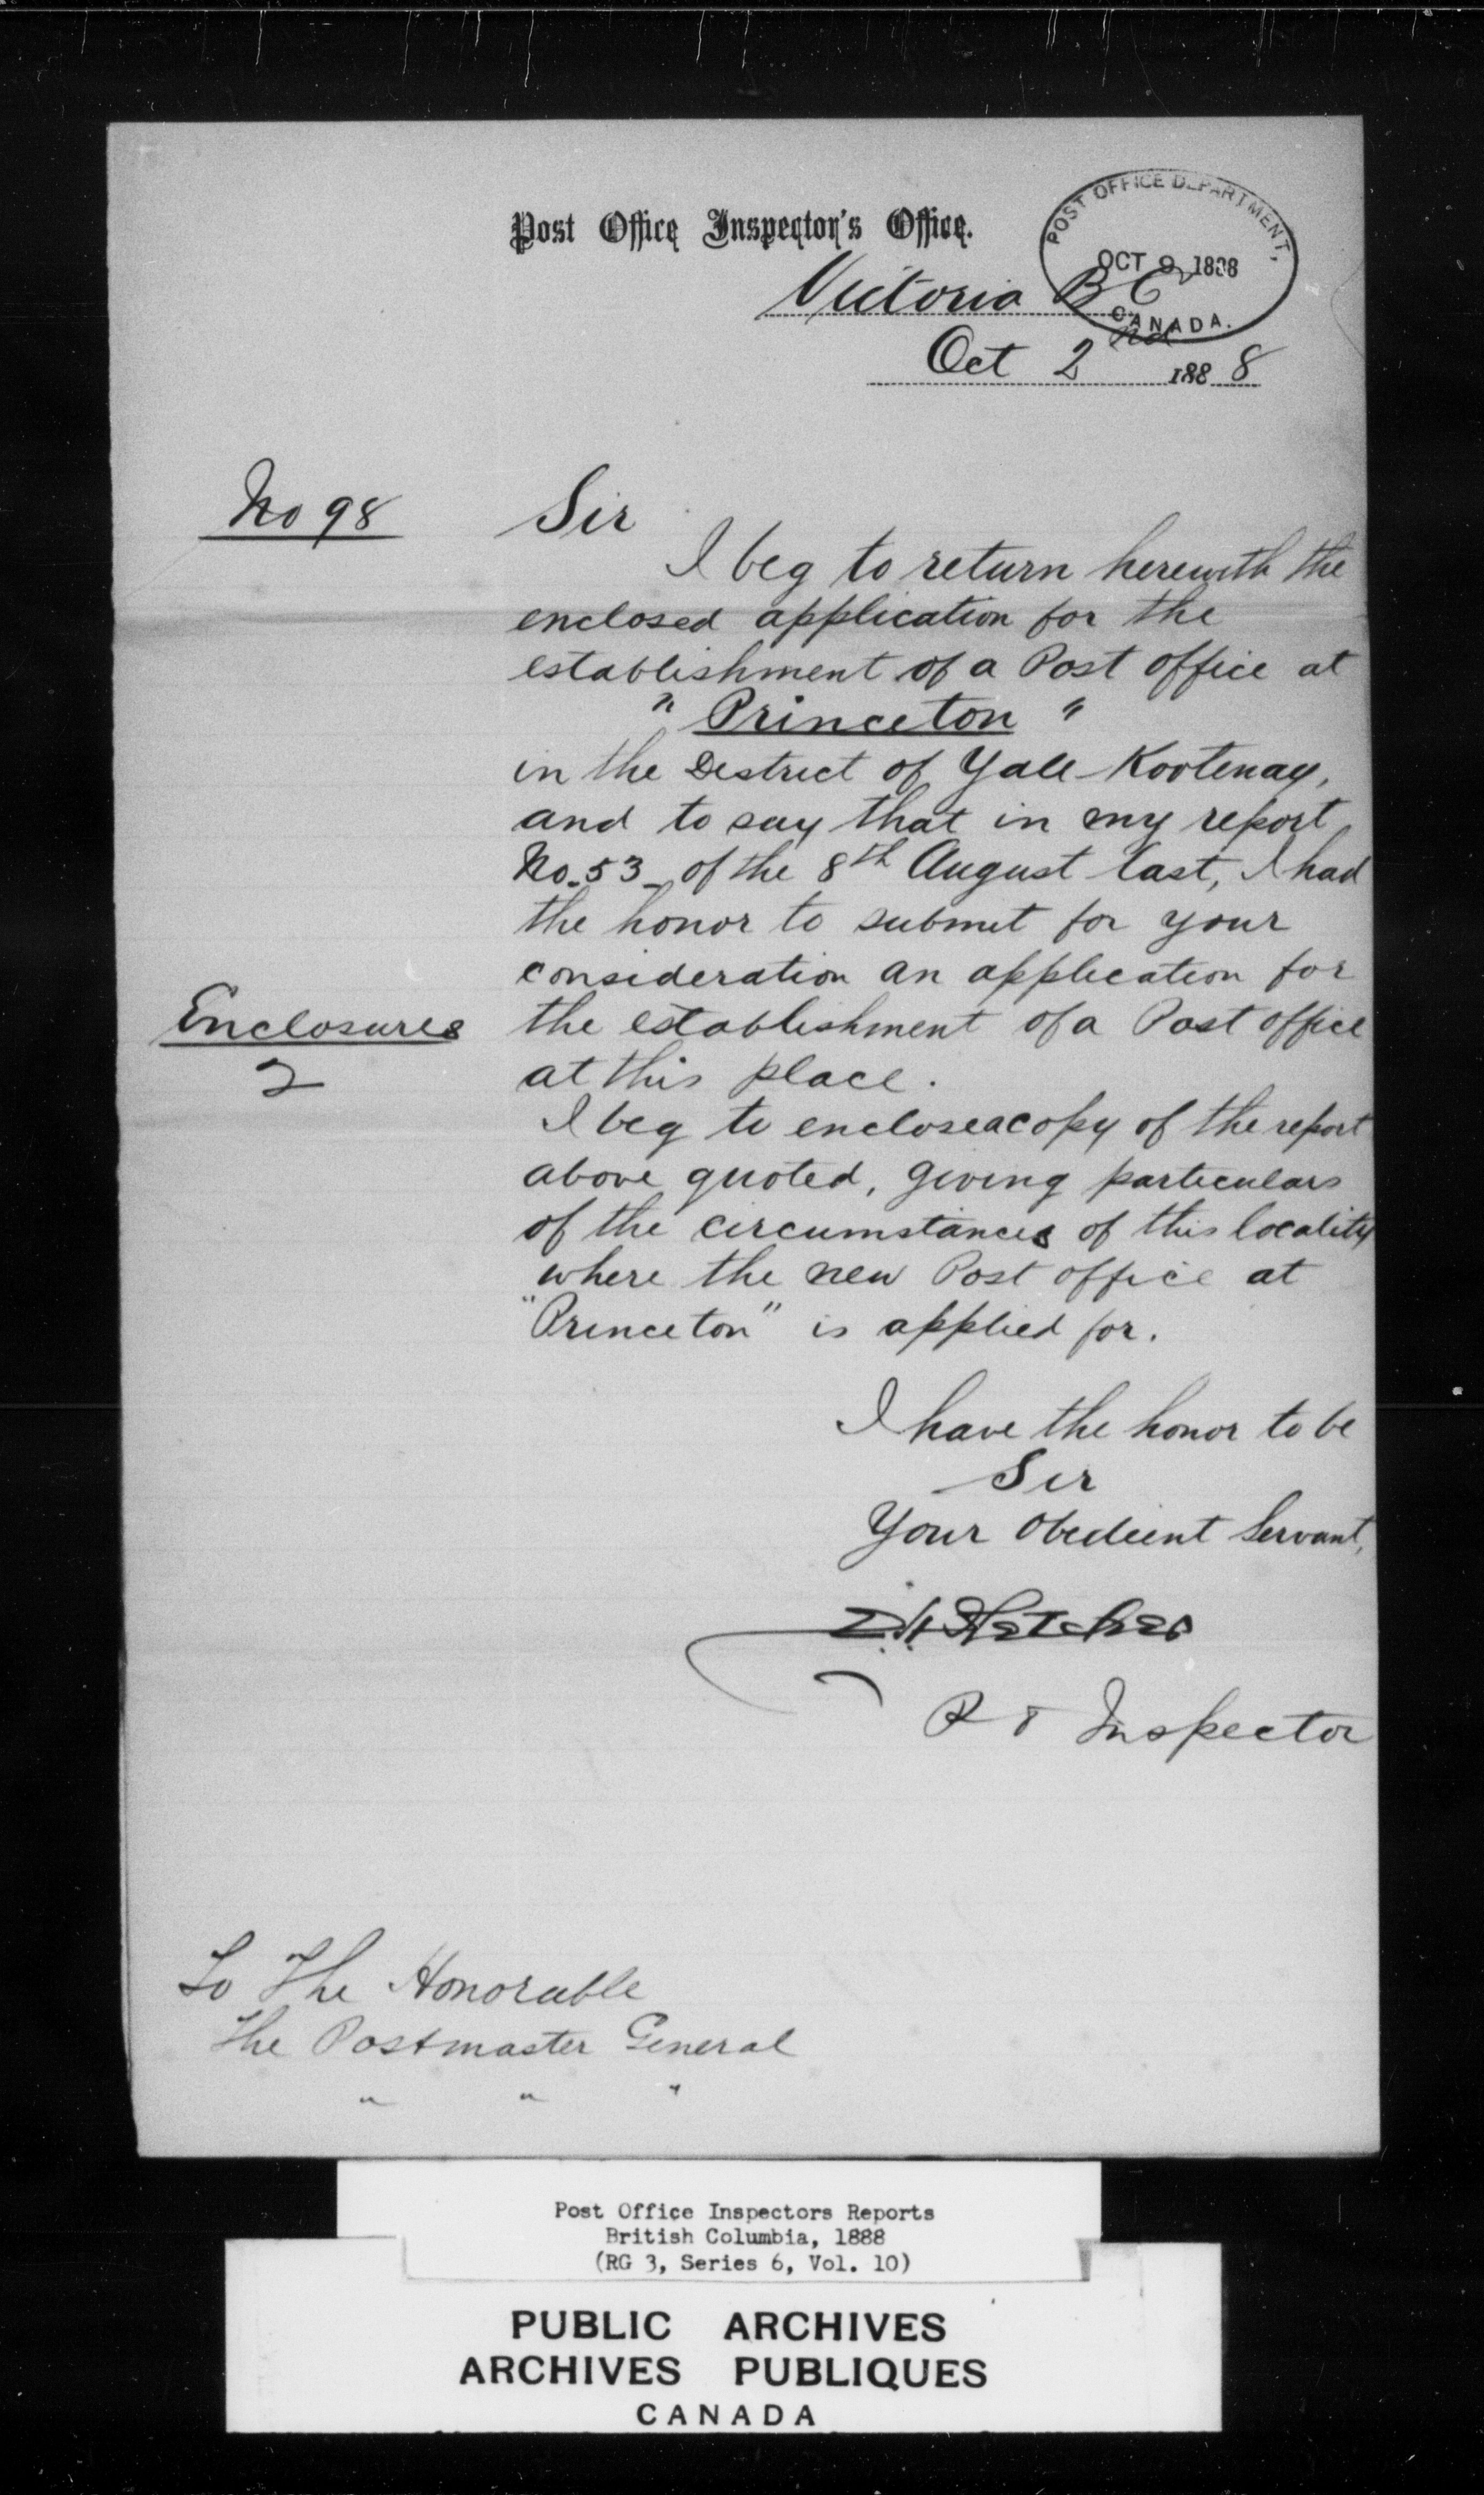 Post Office Inspector's Office.
POST OFFICE DEPARTMENT,
OCT 9 1888
CANADA.
Victoria B C
Oct 2nd 1888
No 98
Sir
I beg to return herewith the
enclosed application for the
establishment of a Post office at
" Princeton "
in the District of Yale-Kootenay,
and to say that in my report
No. 53 - of the 8th August last, I had
the honor to submit for your
consideration an application for
the establishment of a Post office
at this place.
Enclosures
2
I beg to enclose a copy of the report
above quoted, giving particulars
of the circumstances of this locality
where the new Post office at
"Princeton" is applied for.
I have the honor to be
Sir
Your Obedient Servant,
Fletcher
P O Inspector
To The Honorable
The Postmaster General
" " "
Post Office Inspectors Reports
British Columbia, 1888
(RG 3, Series 6, Vol. 10)
PUBLIC ARCHIVES
ARCHIVES PUBLIQUES
CANADA